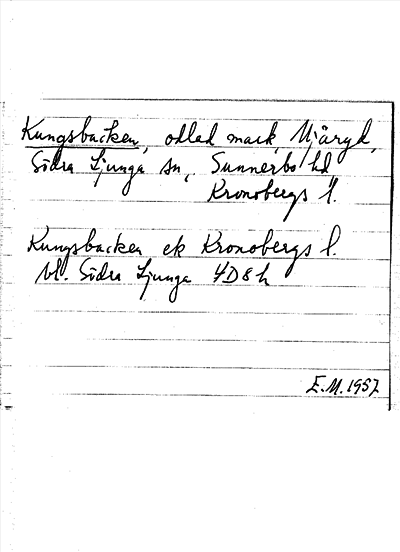 Kungsbacken, odlad mark, Mjäryd,
Södra Ljunga sn, Sunnerbo hd
Kronobergs l.
Kungsbacken ek Kronobergs l.
bl. Södra Ljunga 4D8h
E.M. 1957